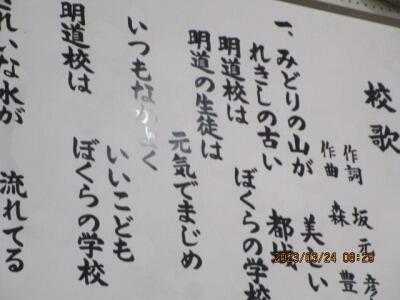 校歌
作詞 坂元 彦
作曲 森 豊
一、みどりの山が 美しい
れきしの古い 都城
明道校は ぼくらの学校
明道の生徒は
元気でまじめ
いつもなかよく
いいこども
明道校は ぼくらの学校
れいな水が 流れてる
2023/03/24 08:26